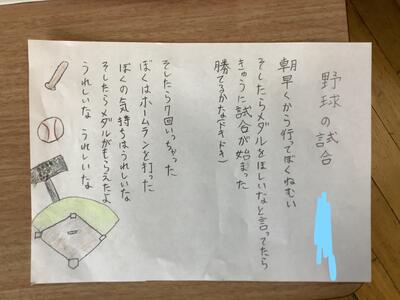 野球の試合
朝早くから行ってぼくねむい
そしたらメダルをほしいなと言ってたら
きゅうに試合が始まった
勝てるかな(ドキドキ)
そしたら7回いっちゃった
ぼくはホームランを打った
ぼくの気持ちはうれしいな
そしたらメダルがもらえたよ
うれしいな うれしいな